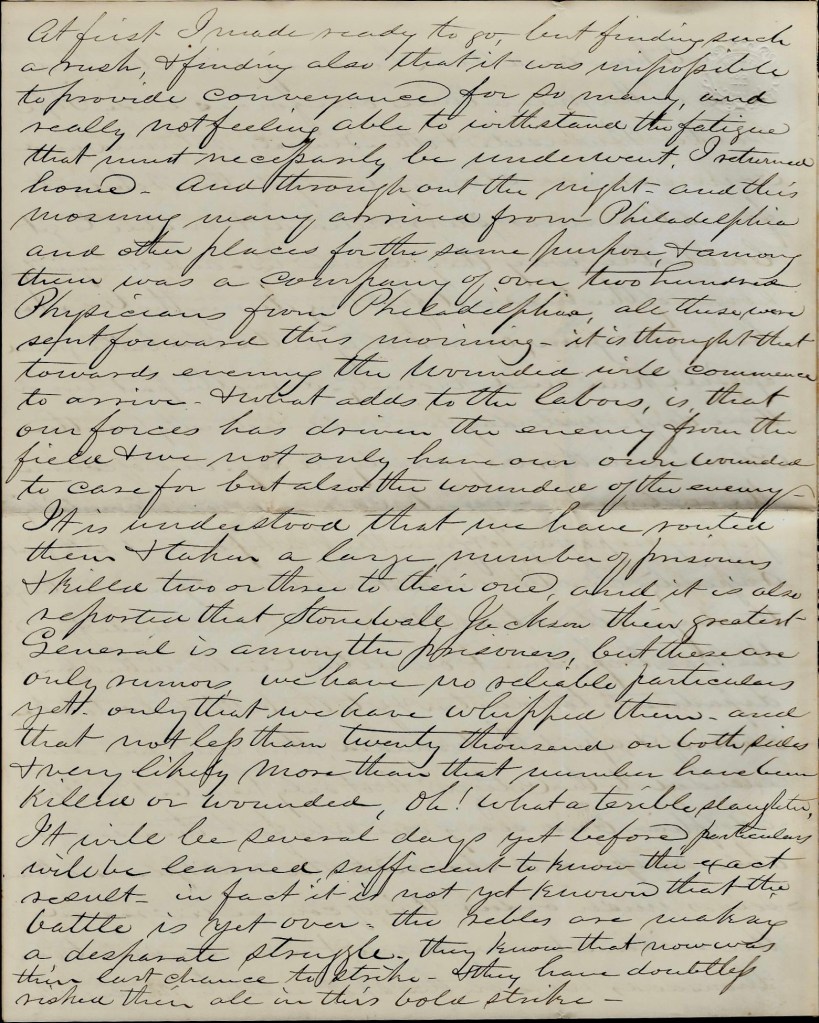 At first I made ready to go, but finding such
a rush, & finding also that it was impossible
to provide conveyance for so many, and
really not feeling able to withstand the fatigue
that must necessarily be underwent, I returned
home - And throughout the night - and this
morning many arrived from Philadelphia
and other places for the same purpose, & among
them was a company of over two hundred
Physicians from Philadelphia, all these were
sent forward this morning - it is thought that
towards evening the wounded will commence
to arrive - & what adds to the labors, is, that
our forces has driven the enemy from the
field & we not only have our own wounded
to care for but also the wounded of the enemy -
It is understood that we have routed
them & taken a large number of prisoners
& killed two or three to their one, and it is also
reported that Stonewall Jackson their greatest
General is among the prisoners, but these are
only rumors, we have no reliable particulars
yet - only that we have whipped them - and
that not less than twenty thousand on both sides
& very likely more than that number have been
killed or wounded, Oh! what a terible slaughter,
It will be several days yet before particulars
will be learned sufficient to know the exact
result - in fact it is not yet known that the
battle is yet over - the rebles are making
a desparate struggle - they know that now was
their last chance to strike - & they have doubtless
risked their all in this bold strike -